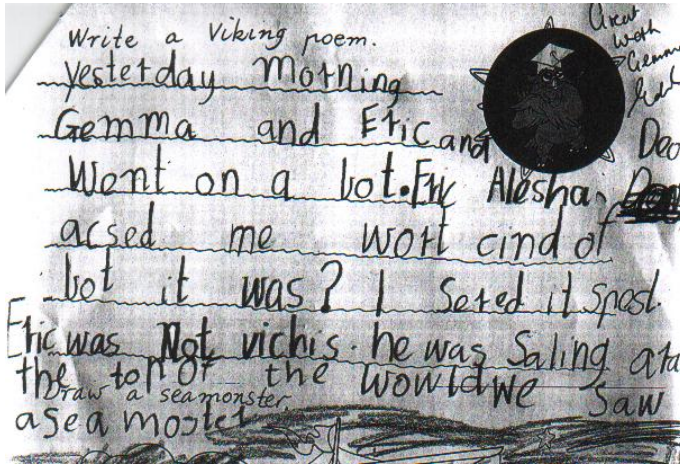 Write a Viking poem.
Great
Work
Gemma
yesterday morning
Gemma and Eric and
Went on a bot. Eric Alesha
acsed me wort cind of
bot it was? I sered it
Eric was Not vichis. he was Saling
the top of the wowld we saw
Draw a seamonster.
a Sea moster